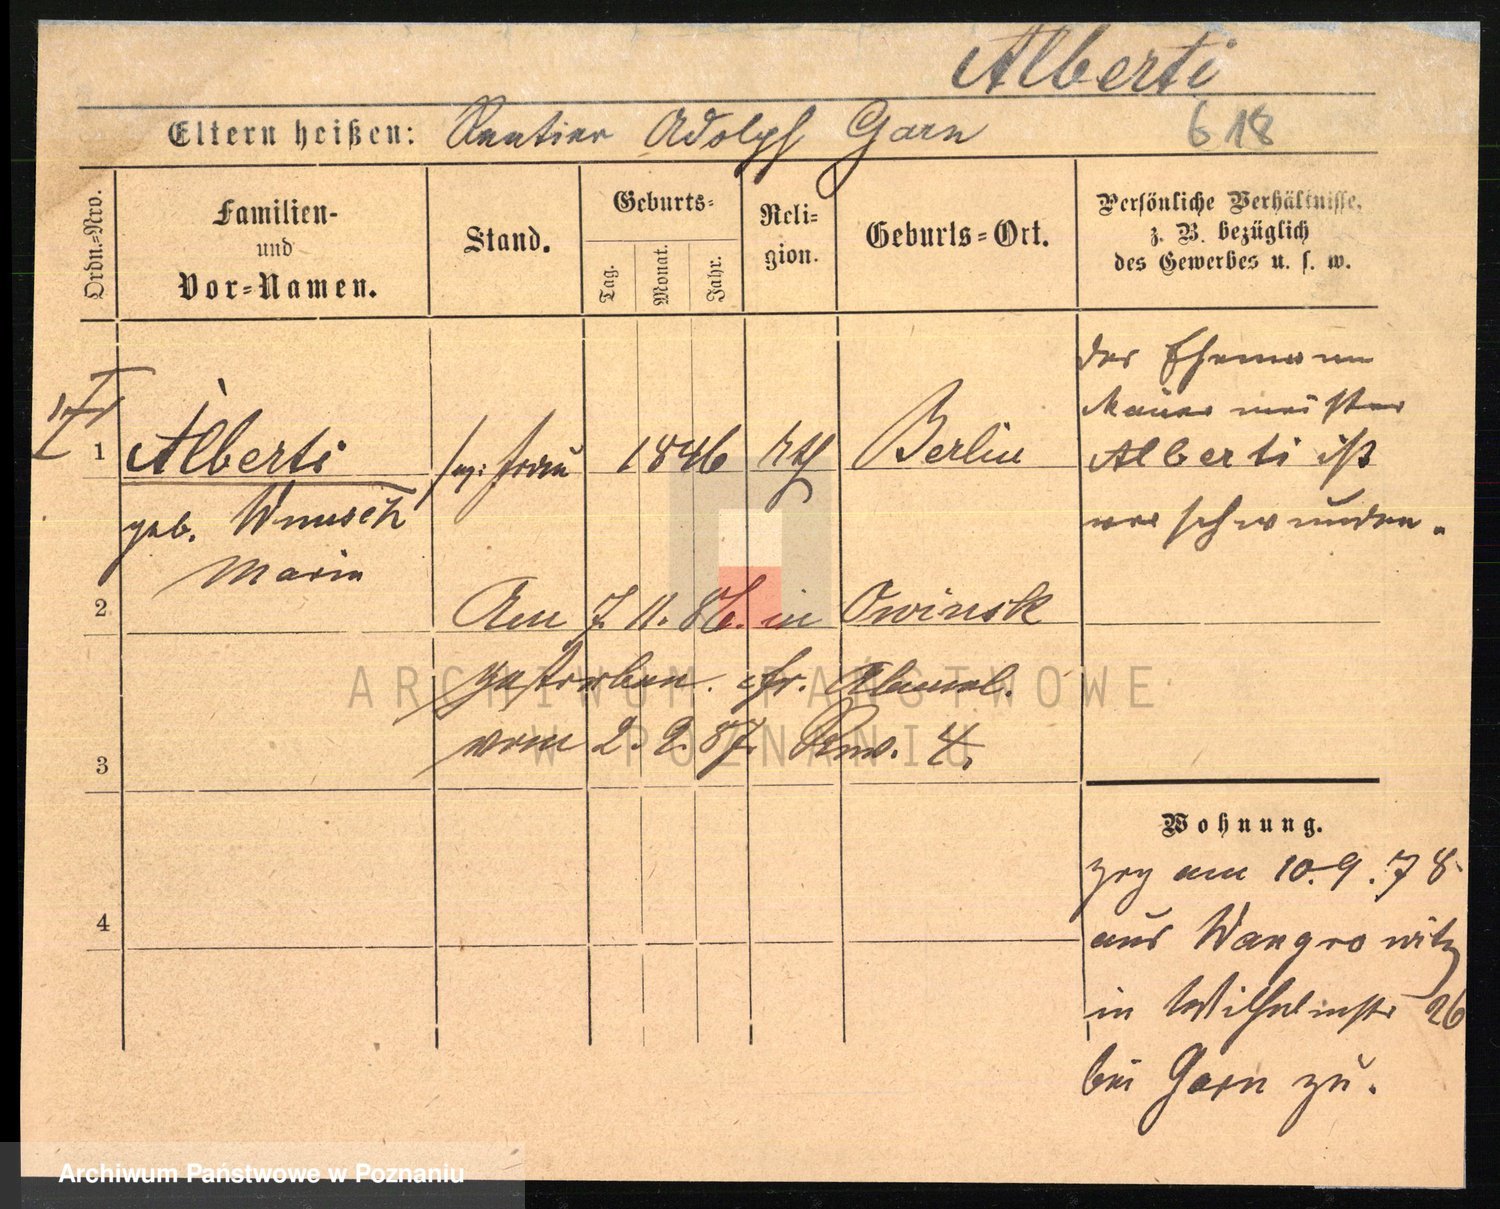 Alberti
618
Eltern heißen: Rentier Adolph Garn
Ordn.=Nro.
Familien-
und
Vor=Namen.
Stand.
Geburts=
Tag.
Monat.
Jahr.
Reli=
gion.
Geburts=Ort.
Persönliche Verhältnisse,
z. B. bezüglich
des Gewerbes u. s. w.
1
Alberti
geb. Wunsch
Marie
sep: Frau
1846
Berlin
der Ehemann
Mauermeister
Alberti ist
verschwunden.
2
Am 7. 11. 86. in Owinsk
gestorben. cfr. Abmel.
vom 2. 2. 87. Rev. 4.
3
4
Wohnung.
zog am 10. 9. 78
aus Wangrowitz
in Wilhelmstr 26
bei Garn zu.
ARCHIWUM PAŃSTWOWE
W POZNANIU
Archiwum Państwowe w Poznaniu